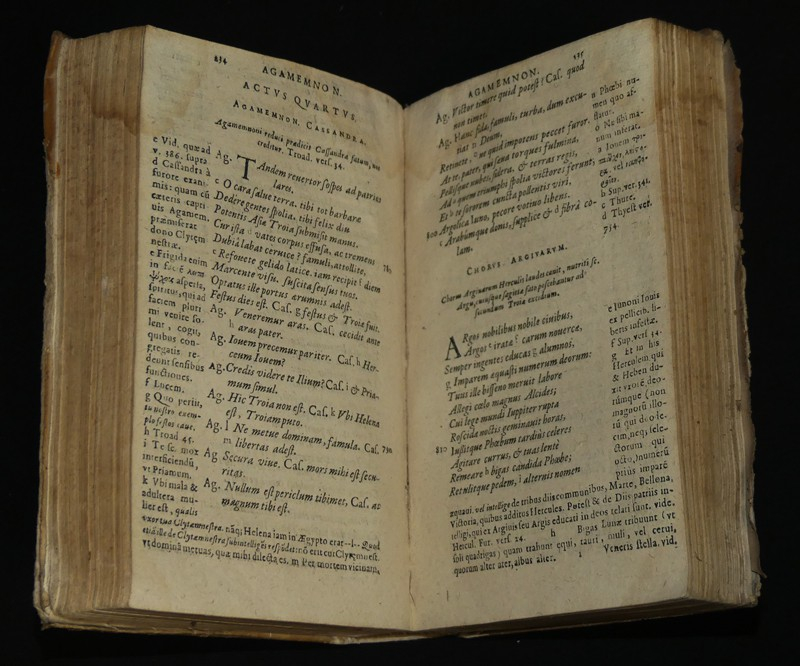 234
AGAMEMNON.
ACTVS QVARTVS.
AGAMEMNON, CASSANDRA.
Agamemnoni reduci prædicit Cassandra fatum, nec
creditur. Troad. vers. 34.
Ag. TAndem revertor sospes ad patrios
lares.
c O cara salue terra. tibi tot barbaræ
Dedere gentes spolia. tibi felix diu
Potentis Asiæ Troia submisit manus.
Cur ista d vates corpus effusa, ac tremens
Dubia labat ceruice? famuli, attollite,
e Refouete gelido latice. iam recipit f diem
Marcente visu. suscita sensus tuos.
Optatus ille portus ærumnis adest.
Festus dies est. Cas. g festus & Troiæ fuit.
Ag. Veneremur aras. Cas. cecidit ante
h aras pater.
Ag. Iouem precemur pariter. Cas. h Her-
ceum Iouem?
Ag. Credis videre te Ilium? Cas. i & Pria-
mum simul.
Ag. Hic Troia non est. Cas. k Vbi Helena
est, Troiam puto.
Ag. l Ne metue dominam, famula. Cas. 790
m libertas adest.
Ag. Secura viue. Cas. mors mihi est secu-
ritas.
Ag. Nullum est periclum tibimet, Cas. at
magnum tibi est.
c Vid. quæ ad
v. 386. supra
d Cassandra à
furore exani-
mis: quam cū
exteris captis
uis Agamem.
præmiserat
dono Clytem
nestræ.
e Frigida enim
in facie
aspersæ,
spiritus, qui ad
faciem pluri
mi venire so-
lent, cogit,
quibus con-
gregatis re-
deunt sensibus
functiones.
f Lucem.
g Quo periit,
tu nostro exem-
plo festos caue.
h Troad 45.
i Te sc. mox
interficiendū,
vt Priamum.
k Vbi mala &
adultera mu-
lier est, qualis
exortua Clytæmnestra. nāq; Helena iam in Ægypto erat
vt dominā metuas, quæ mihi dilecta es. m Per mortem vicinam,
235
AGAMEMNON.
Ag. Victor timere quid potest? Cas. quod
non timet.
Ag. Hanc fida famuli, turba, dum excu-
tiat n Deum,
Retinete, o ne quid impotens peccet furor.
At te, pater, qui sæua torques fulmina,
Pellisque nubes, sidera, & terras regis,
Ad a quem triumphi spolia victores ferunt,
Et b te sororem cuncta pollentis viri,
800 Argolica Iuno, pecore votiuo libens.
c Arabumque donis, supplice & d fibra co-
lam.
CHORVS ARGIVARVM.
Chorus Argiuarum Herculis laudes canit, nutriti sc.
Argis, cuiusque sagittæ fato poscebantur ad
secundum Troiæ excidium.
ARgos nobilibus nobile ciuibus,
Argos e iratæ f carum nouercæ,
Semper ingentes educas g alumnos,
g Imparem æquasti numerum deorum:
Tuus ille bisseno meruit labore
Allegi cœlo magnus Alcides;
Cui lege mundi Iuppiter rupta
Roscidæ noctis geminauit horas,
810 Iussitque Phœbum tardiùs celeres
Agitare currus, & tuas lentè
Remeare h bigas candida Phœbe;
Retulitque pedem, i alternis nomen
n Phœbi nu-
men quo af-
flatur.
o Ne sibi ma-
num inferat.
a Iouem
b Sup. ver. 341.
c Thure.
d Thyest ver.
734.
e Iunoni Iouis
ex pellicib. li-
beris infestæ.
f Sup. vers 14.
g Et in his
Herculem, qui
& Heben du-
deo-
rúmque (non
magnorū illo-
rū qui dicōse-
cim, neq; sele-
ctorum qui
octo,) numerū
priùs imparē
æquaui. vel intellige de tribus diis communibus, Marte, Bellena,
Victoria, quibus additos Hercules. Potest & de Diis patriis in-
telligi, qui ex Argiuis seu Argis educati in deos relati sunt. vide,
Hercul. Fur. vers. 14. h Bigas Lunæ tribuunt (vt
soli quadrigas) quam trahunt equi, tauri, muli, vel cerui,
quorum alter ater, albus alter. i Veneris stella. vid.